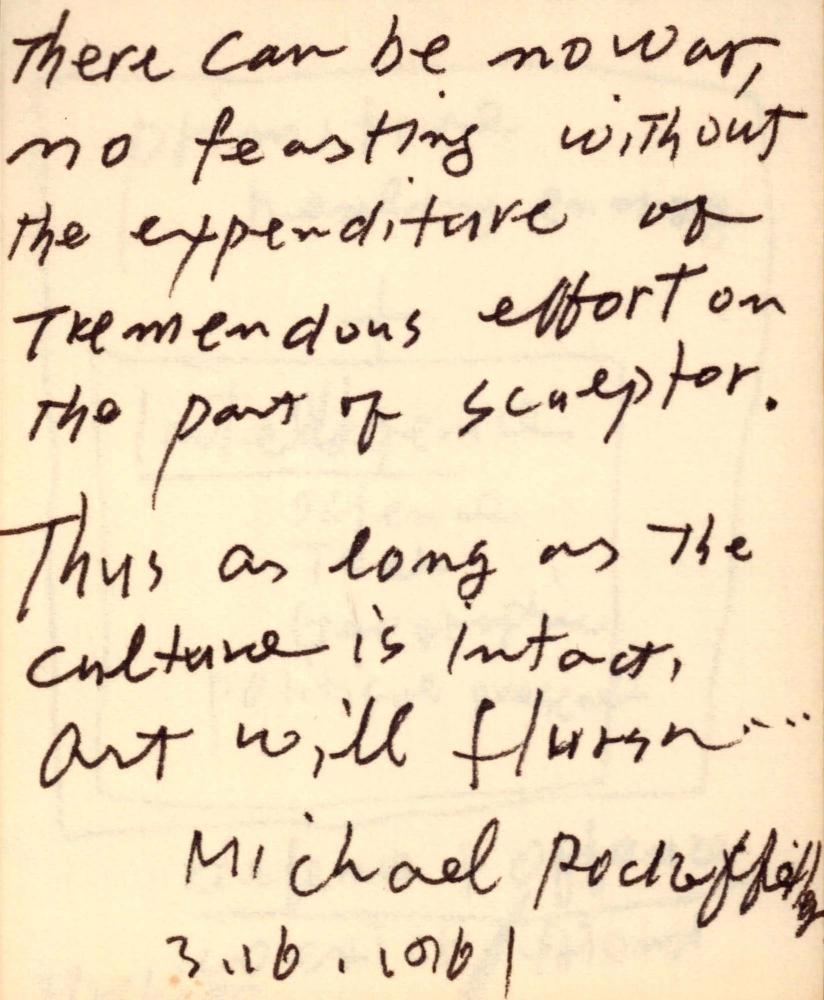 There can be no war,
no feasting without
the expenditure of
Tremendous effort on
the part of sculptor.
Thus as long as the
culture is intact,
art will flursh...
Michael
3.16.1961